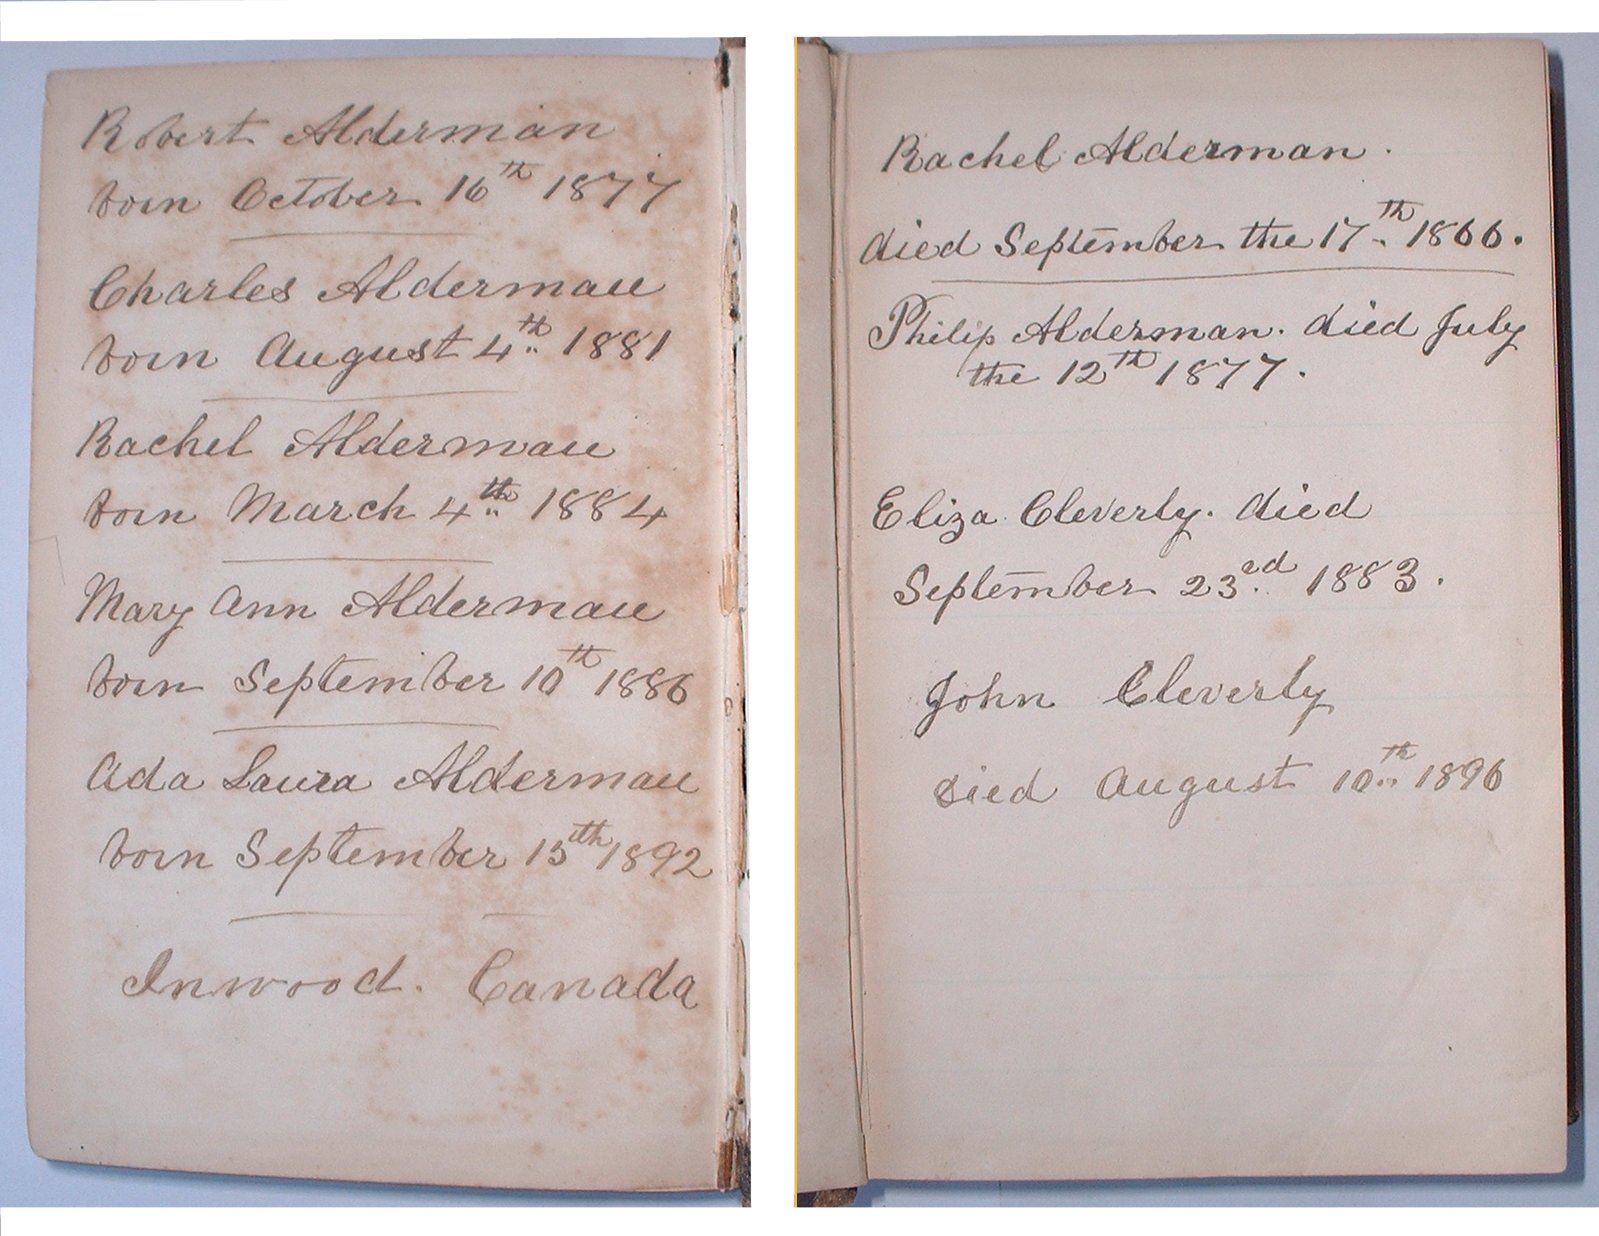 Robert Alderman
born October 16th 1877
Charles Alderman
born August 4th 1881
Rachel Alderman
born March 4th 1884
Mary Ann Alderman
born September 10th 1886
Ada Laura Alderman
born September 15th 1892
Inwood. Canada
Rachel Alderman.
died September the 17th 1866.
Philip Alderman. died July
the 12th 1877.
Eliza Cleverly. died
September 23rd 1883.
John Cleverly
died August 10th 1896